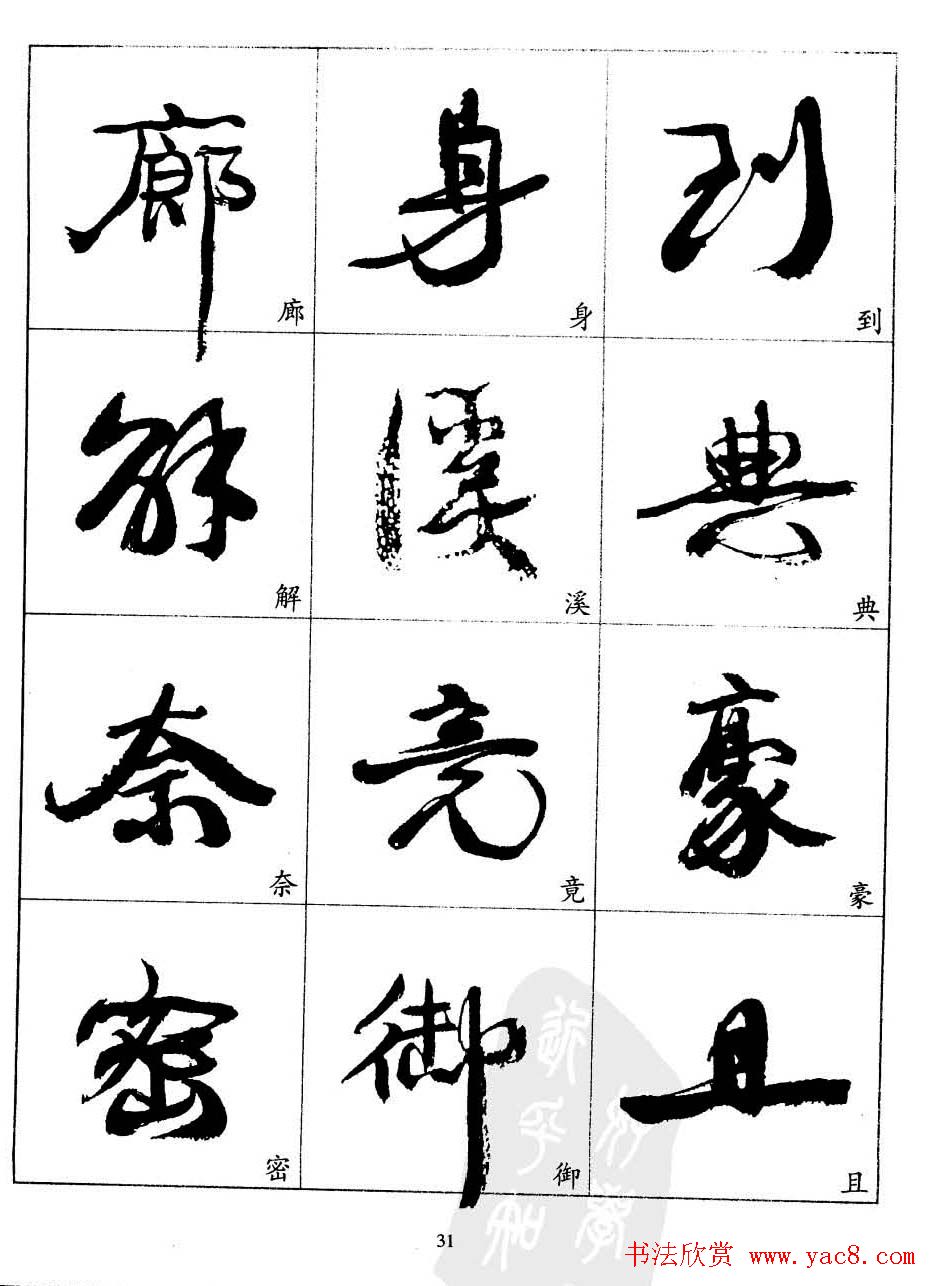 廊 身 到
廊 身 到
解 溪 典
解 溪 典
奈 竟 豪
奈 竟 豪
密 御 且
密 御 且
31
书法欣赏 www.yac8.com